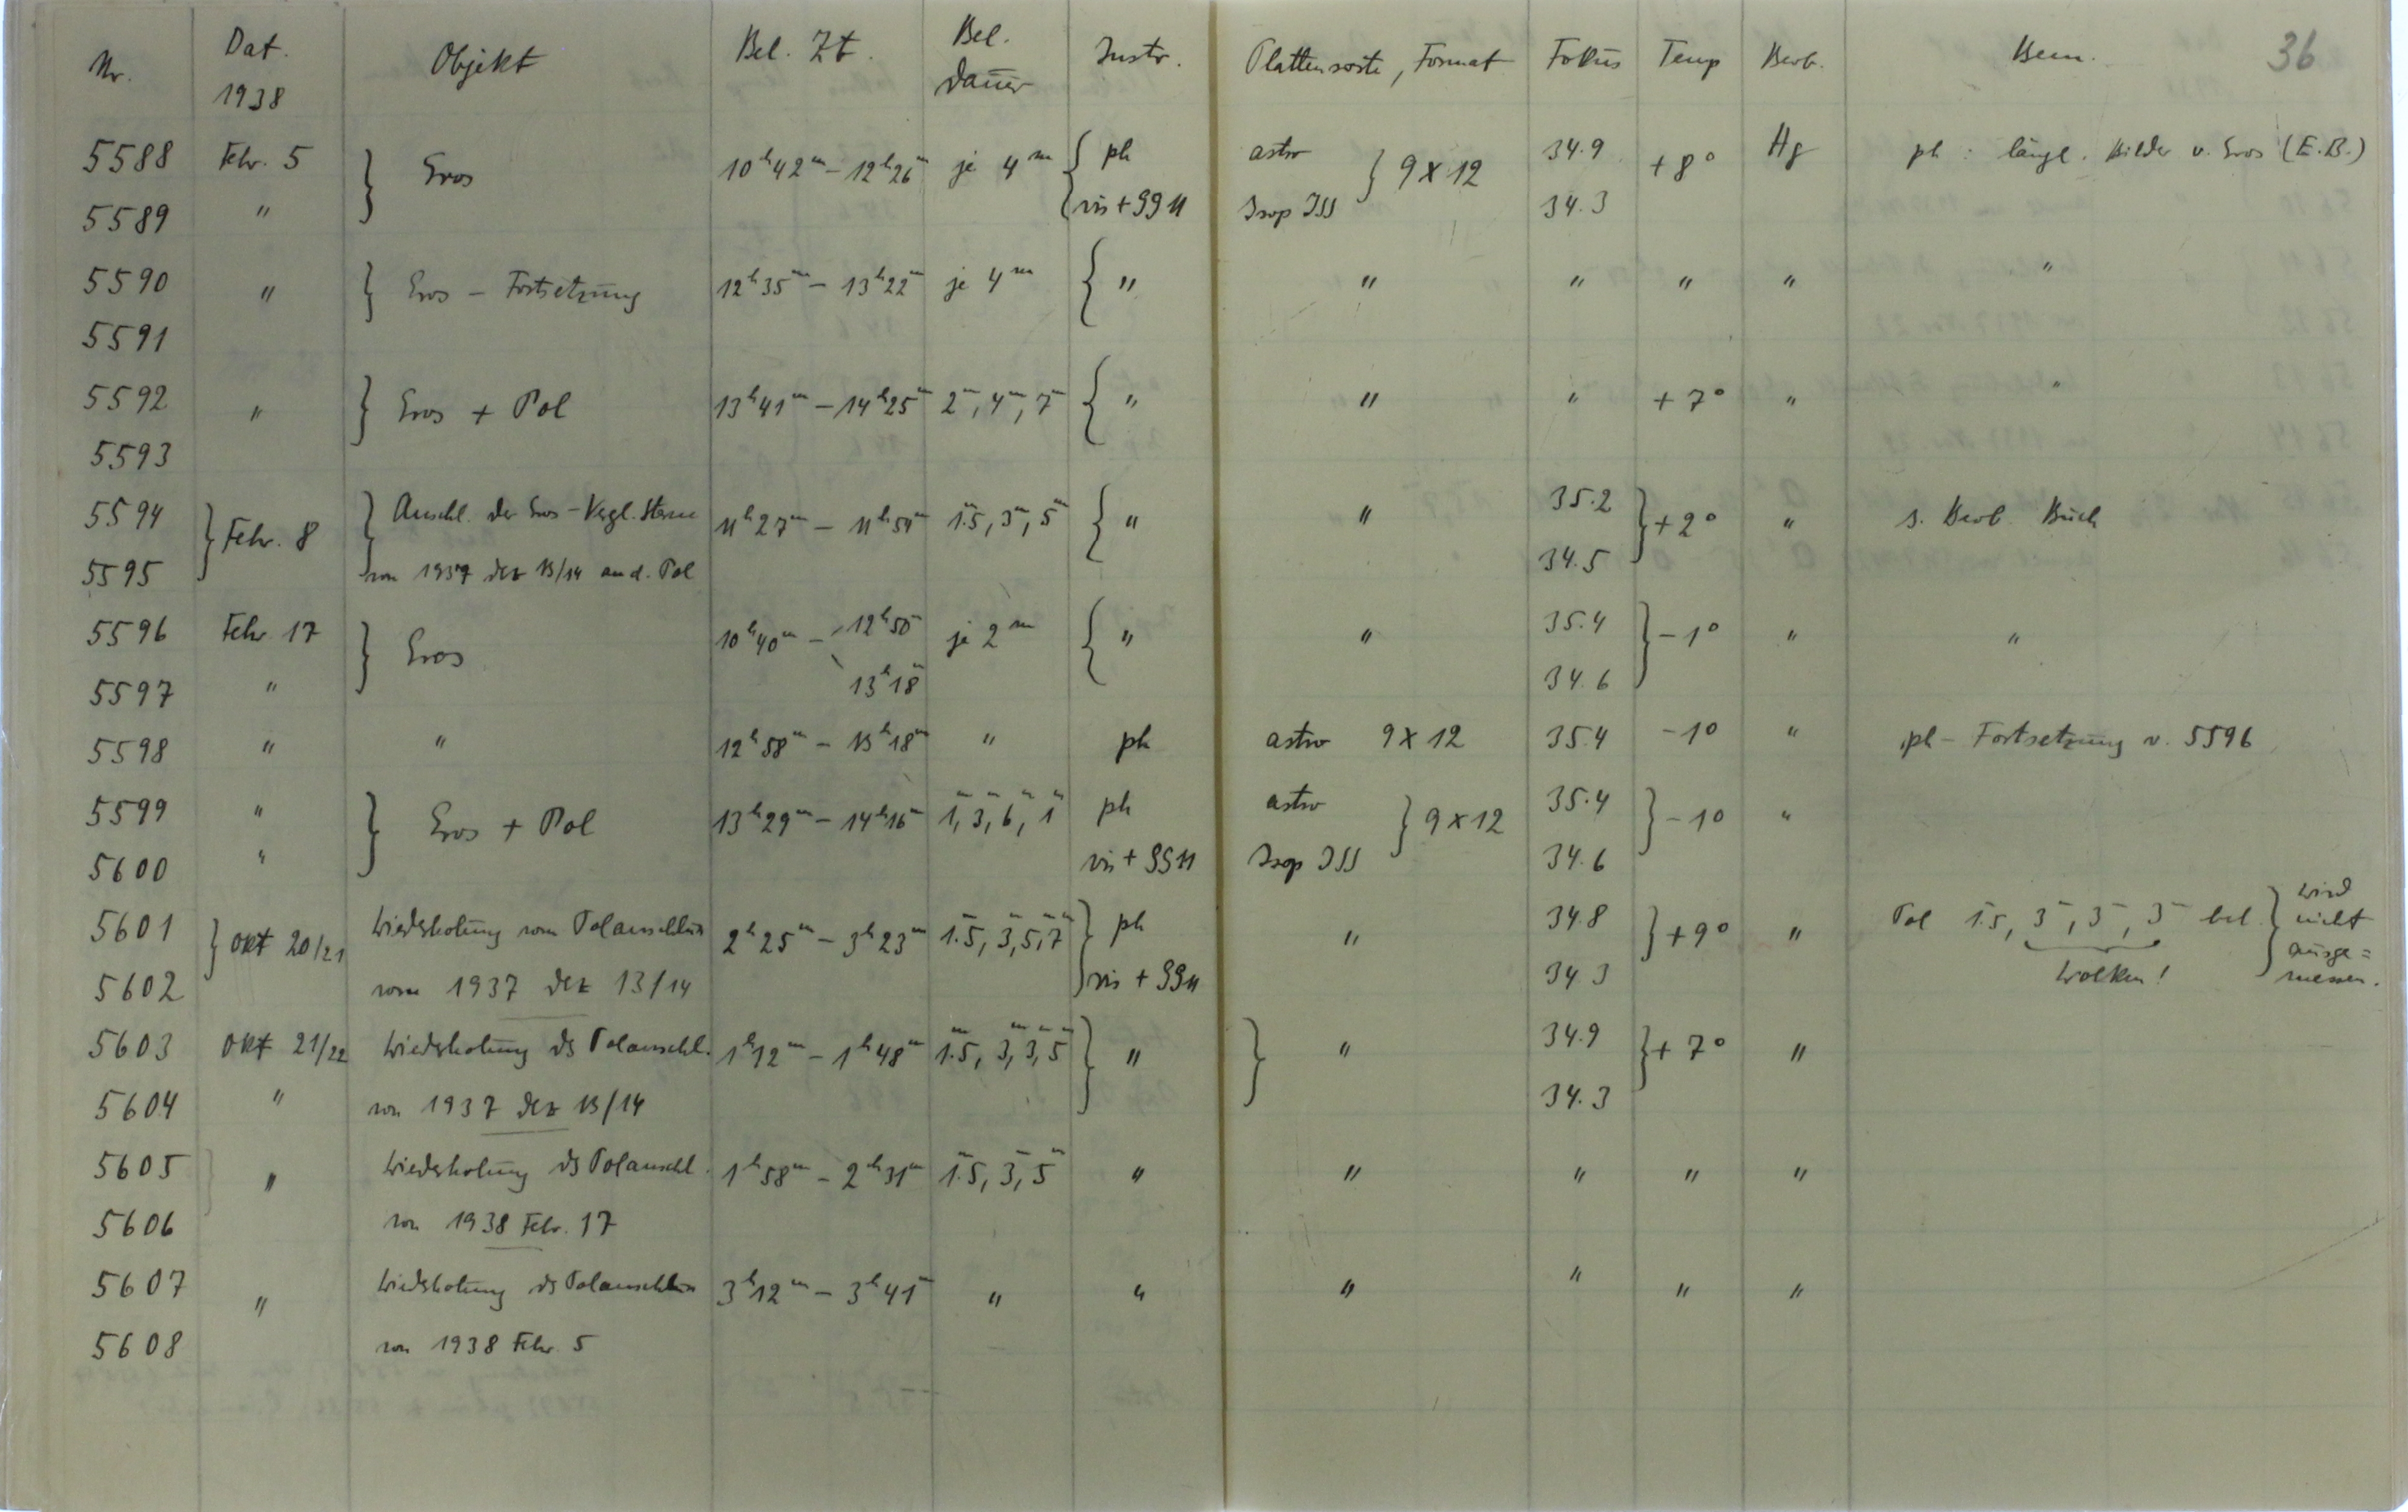 Nr. Dat. 1938 Objekt Bel. Zt. Bel. Dauer Instr. Plattensorte, Format Fokus Temp Beob. Bem. 36
5588 Febr. 5 } Eros 10h42m – 12h26m je 4m { ph astro } 9 x 12 34.9 +8° Hg ph : längl. Bilder v. Eros (E.B.)
5589 " vis + GG11 Isop ISS 34.3
5590 " } Eros – Fortsetzung 12h35m – 13h22m je 4m { " " " " " "
5591
5592 " } Eros + Pol 13h41m – 14h25m 2m, 4m, 7m { " " " +7° " "
5593
5594 } Febr. 8 } Anschl. der Eros-Vergl. Sterne 11h27m – 11h54m 1.5m, 3m, 5m { " " 35.2 } +2° " s. Beob. Buch
5595 von 1937 Dez 13/14 an d. Pol 34.5
5596 Febr 17 } Eros 10h40m – 12h50m je 2m { " " 35.4 } –1° " "
5597 " 13h18m 34.6
5598 " " 12h58m – 13h18m " ph astro 9 x 12 35.4 –1° " ph – Fortsetzung v. 5596
5599 " } Eros + Pol 13h29m – 14h16m 1m, 3m, 6m, 1m ph astro } 9 x 12 35.4 } –1° "
5600 " vis + GG11 Isop ISS 34.6
5601 } Okt 20/21 Wiederholung vom Polanschluss 2h25m – 3h23m 1.5m, 3m, 5m, 7m } ph " 34.8 } +9° " Pol 1.5m, 3m, 3m, 3m bel. } wird nicht
5602 vom 1937 Dez 13/14 vis + GG11 34.3 Wolken! ausge=
messen.
5603 Okt 21/22 Wiederholung ds Polanschl. 1h12m – 1h48m 1.5m, 3m, 3m, 5m } " } " 34.9 } +7° "
5604 " von 1937 Dez 13/14 34.3
5605 " Wiederholung ds Polanschl. 1h58m – 2h31m 1.5m, 3m, 5m " " " " "
5606 von 1938 Febr. 17
5607 " Wiederholung ds Polanschluss 3h12m – 3h41m " " " " " "
5608 von 1938 Febr. 5